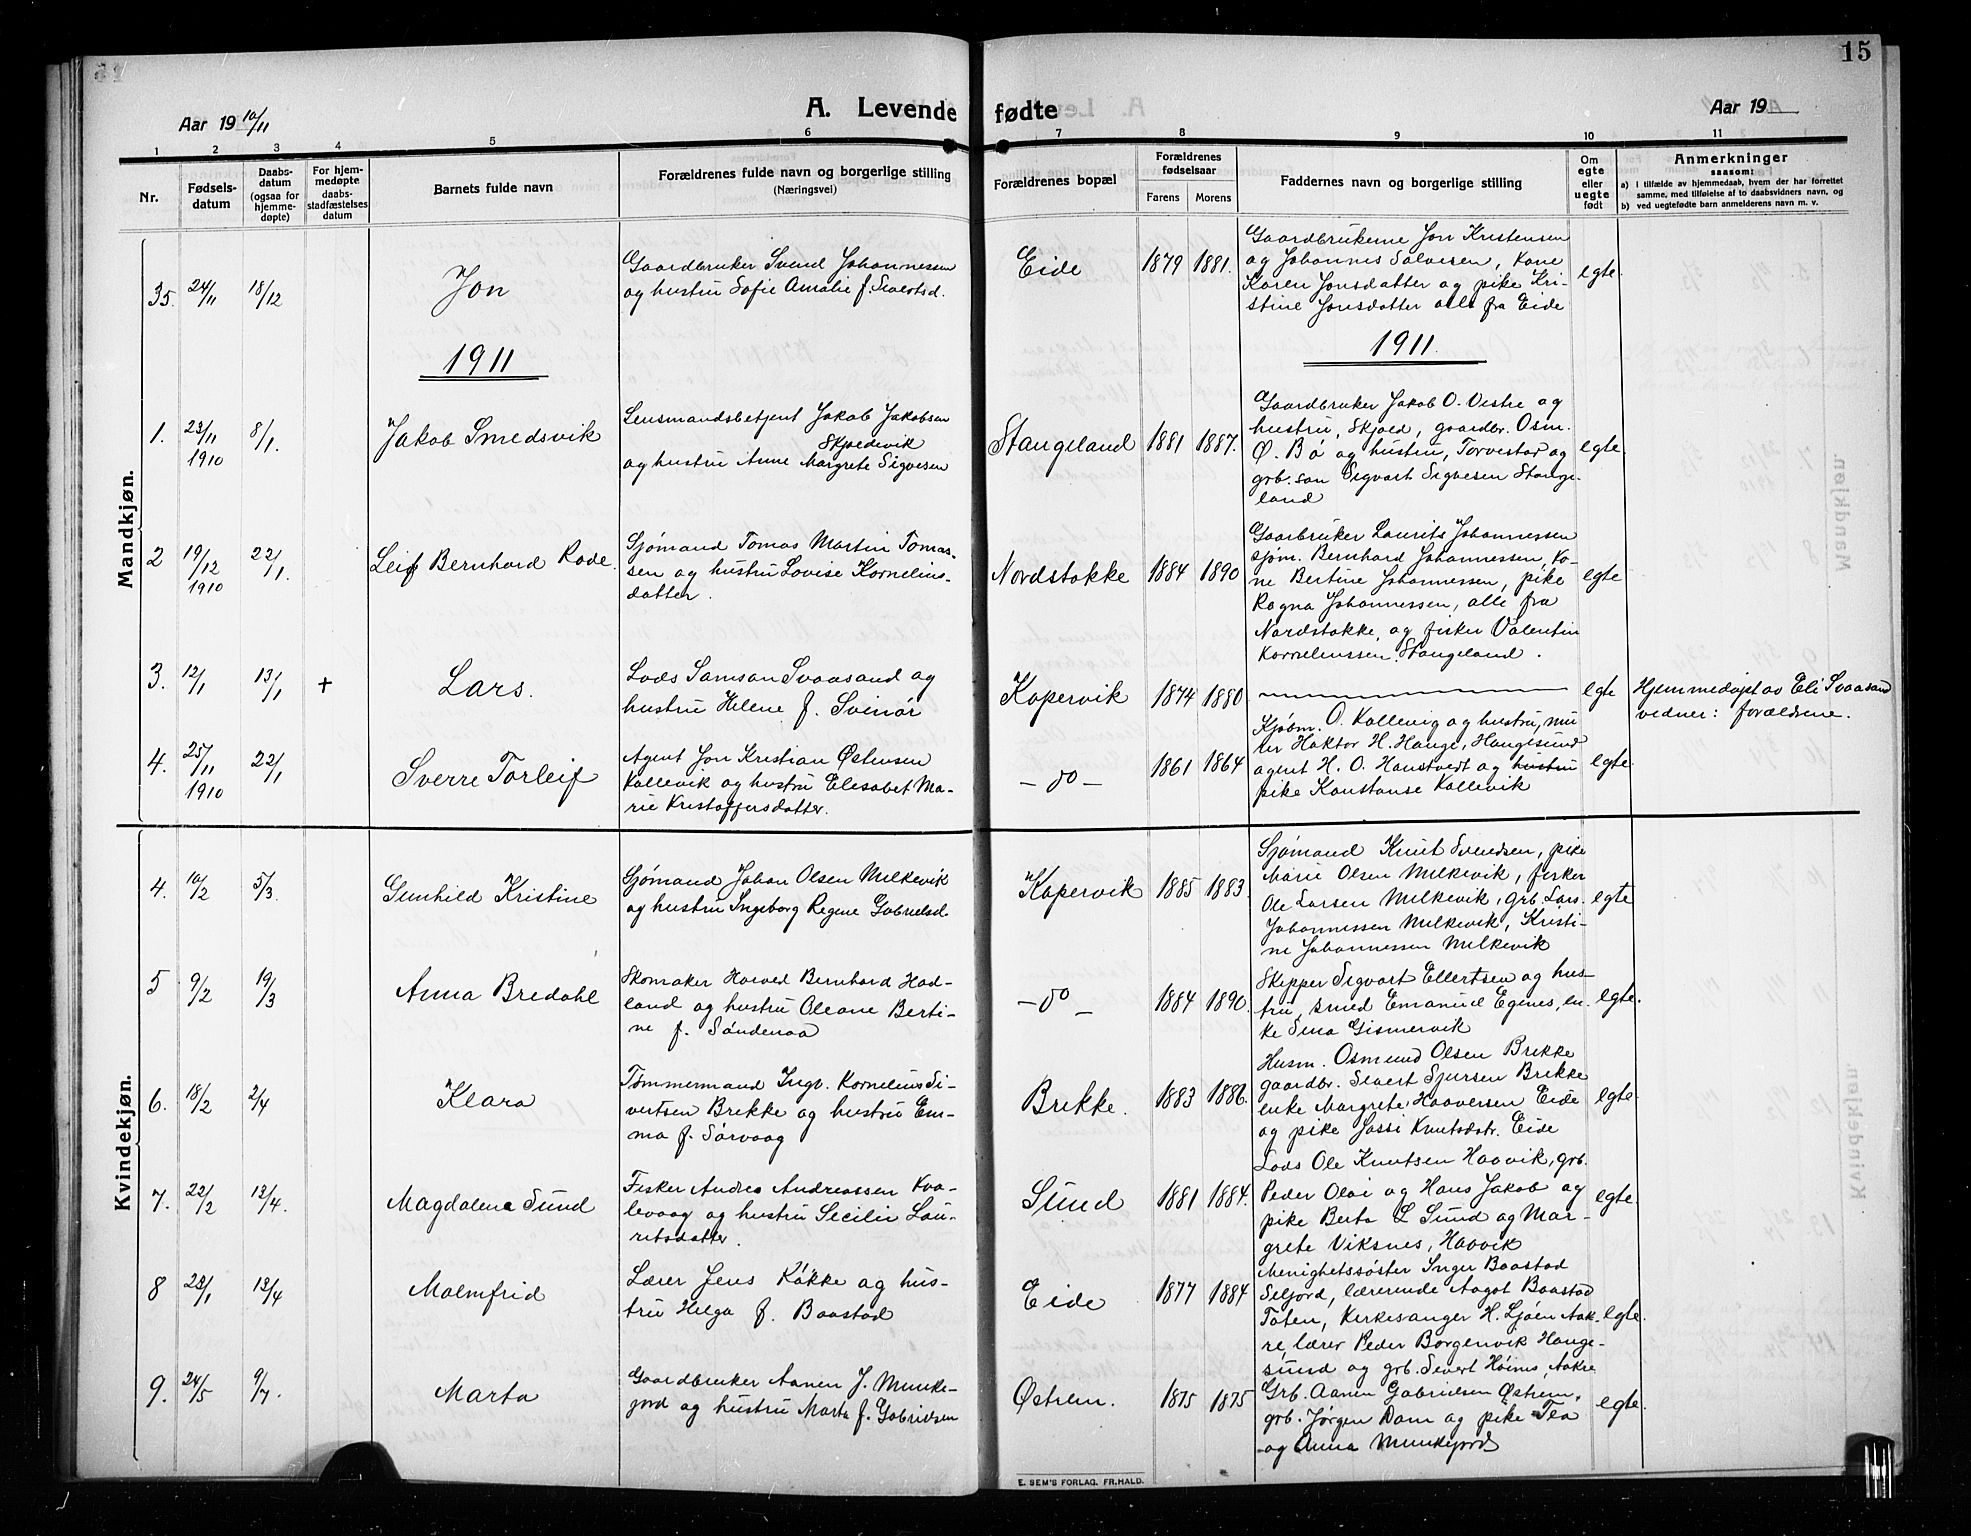 15
A. Levende fødte
Aar 19 10/11
Aar 19
1 2 3 4 5 6 7 8 9 10 11
Nr.
Fødsels-
datum
Daabs-
datum
(ogsaa for
hjemme-
døpte)
For hjem-
medøpte
daabs-
stadfæstelses
datum
Barnets fulde navn
Forældrenes fulde navn og borgerlige stilling
(Næringsvei)
Forældrenes bopæl
Forældrenes
fødselsaar
Farens Morens
Faddernes navn og borgerlige stilling
Om
egte
eller
uegte
født
Anmerkninger
saasom:
a) i tilfælde av hjemmedaab, hvem der har forrettet
samme, med tilføielse af to daabsvidners navn, og
b) ved uegtefødte barn anmelderens navn m. v.
Mandkjøn.
35. 24/11 18/12
Jon
Gaardbruker Svend Johannessen
og hustru Sofie Amalie f. Sivertsd.
Eide 1879 1881.
Gaardbrukerne Jon Kristensen
og Johannes Salvesen, Kone
Karen Jonsdatter og pike Kri-
stine Jonsdatter alle fra Eide
egte.
1911
1911.
1. 23/11 1910 8/1.
Jakob Smedsvik
Lensmandsbetjent Jakob Jakobsen
og hustru Anne Margrete Sigvesen
Stangeland 1881 1887.
Gaardbruker Jakob O. Vestre og
hustru, Skjold, gaardbr. Osm.
Ø. Bø og hustru, Torvestad og
grb. søn Sigvart Sigvesen Stange-
land
egte.
2 19/12 1910 22/1.
Leif Bernhard Rode.
Sjømand Tomas Martin Tomas-
sen og hustru Lovise Kornelius-
datter.
Nordstokke 1884 1890
Gaarbruker Laurits Johannessen
sjøm. Bernhard Johannessen, Ko-
ne Bertine Johannessen, pike
Ragna Johannessen, alle fra
Nordstokke, og fisker Valentin
Korneliussen, Stangeland.
egte
3. 12/1 13/1 +
Lars.
Lods Samson Svaasand og
hustru Helene f. Svinør
Kopervik 1874 1880
egte
Hjemmedøpt av Eli Svaasand
vidner: forældrene.
4. 25/11 1910 22/1
Sverre Torleif
Agent Jon Kristian Østensen
Kallevik og hustru Elesabet Ma-
rie Kristoffersdatter.
- do - 1861 1864
Kjøbm. O. Kallevig og hustru, mu-
rer Haktor H. Hauge, Haugesund
agent H. O. Haustvedt og hustru
pike Konstanse Kallevik
egte.
Kvindekjøn.
4. 10/2 5/3.
Gunhild Kristine
Sjømand Johan Olsen Melkevik
og hustru Ingeborg Regine Gabrielsd.
Kopervik 1885 1883.
Sjømand Knut Svendsen, pike
Marie Olsen Melkevik, fisker
Ole Larsen Melkevik, grb. Lars
Johannessen Melkevik, Kristi-
ne Johannessen Melkevik
egte
5 9/2 19/3
Anna Bredahl
Skomaker Havved Bernhard Had-
land og hustru Oleane Berti-
ne f. Søndenaa
- do - 1884 1890.
Skipper Sigvart Ellertsen og hus-
tru, smed Emanuel Egenes, en-
ke Sina Gismervik
egte.
6. 18/2 2/4
Klara
Tømmermand Ingv. Kornelius Si-
vertsen Brekke og hustru Em-
ma f. Sørvaag
Brekke. 1883 1886.
Husm. Osmund Olsen Brekke
gaardbr. Sivert Sjursen Brekke
enke Margrete Haaversen Eide
og pike Jossi Knutsdtr. Eide
egte.
7. 22/2 13/4.
Magdalena Sund
Fisker Andres Andreassen Kva-
levaag og hustru Secilie Lau-
ritsdatter.
Sund 1881 1884.
Lods Ole Knutsen Haavik, grb.
Peder Olai og Hans Jakob og
pike Berta L Sund og Mar-
grete Viksnes, Haavik
egte.
8 23/1 13/4
Malmfrid
Lærer Jens Køkke og hus-
tru Helga f. Baastad
Eide 1877 1884
Menighetssøster Inger Baastad
Seljord, lærerinde Aagot Baastad
Toten, Kirkesanger H. Ljøen Aak-
re, lærer Peder Borgenvik Hauge-
sund og grb. Sivert Høines, Aakre
egte.
9. 24/5 9/7.
Marta
Gaardbruker Aanen J. Munke-
jord og hustru Marta f. Gabrielsen
Østrem. 1875 1875
Grb. Aanen Gabrielsen Østrem,
grb. Jørgen Dam og pike Tea
og Anna Munkejord
egte.
E. SEM'S FORLAG, FR.HALD.